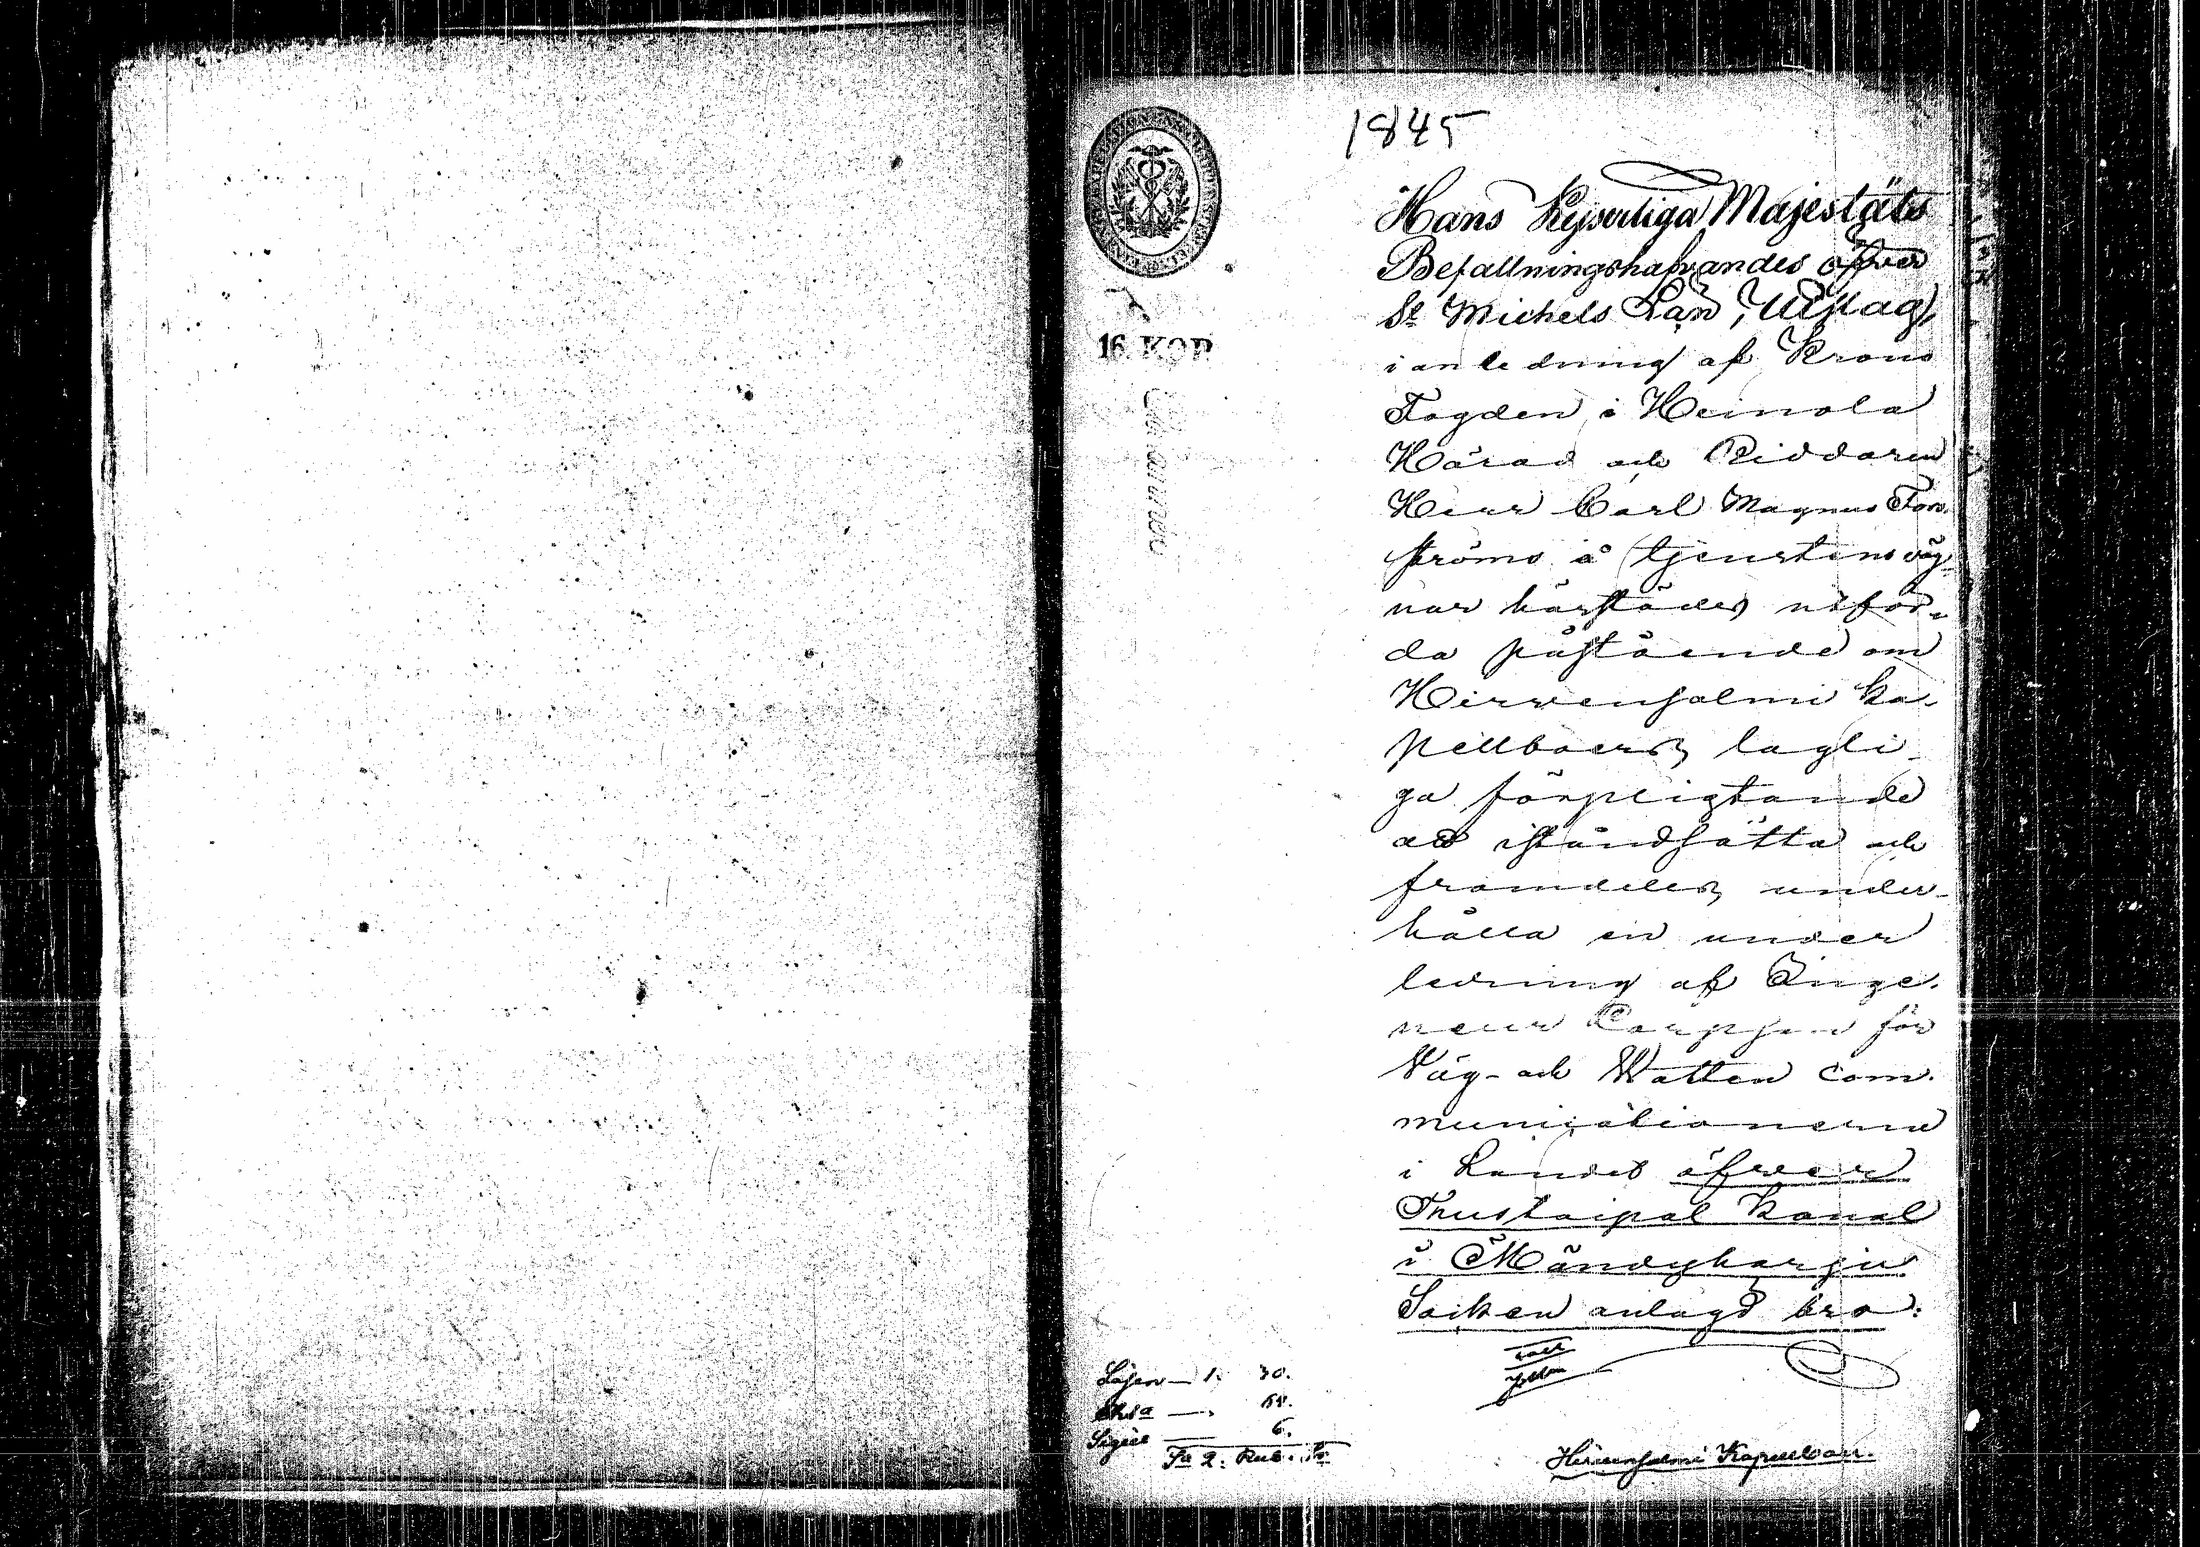 1845
Hans Kejserliga Majestäts
Befallningshafvandes öfver
St Michels Län, Utslag,
i anledning af Krono
Fogden i Heinola
Härad och Riddaren
Herr Carl Magnus Fors-
ströms å tjenstens väg-
nar härstädes utför-
da påstående om
Hirvensalmi Ka-
pellboers lagli-
ga förpligtande
att iståndsätta och
framdeles under-
hålla en under
ledning af Inge-
neur Corpsen för
Väg- och Watten com-
municationerne
i Landet öfver
Thustaipal Kanal
i Mändyharju
Socken anlagd bro:
16 KOP
Lösen — 1. 30.
Chta —. 64.
Sigill — 6.
Sa 2. Rub. Sr
Hirvensalmi Kapellboer.